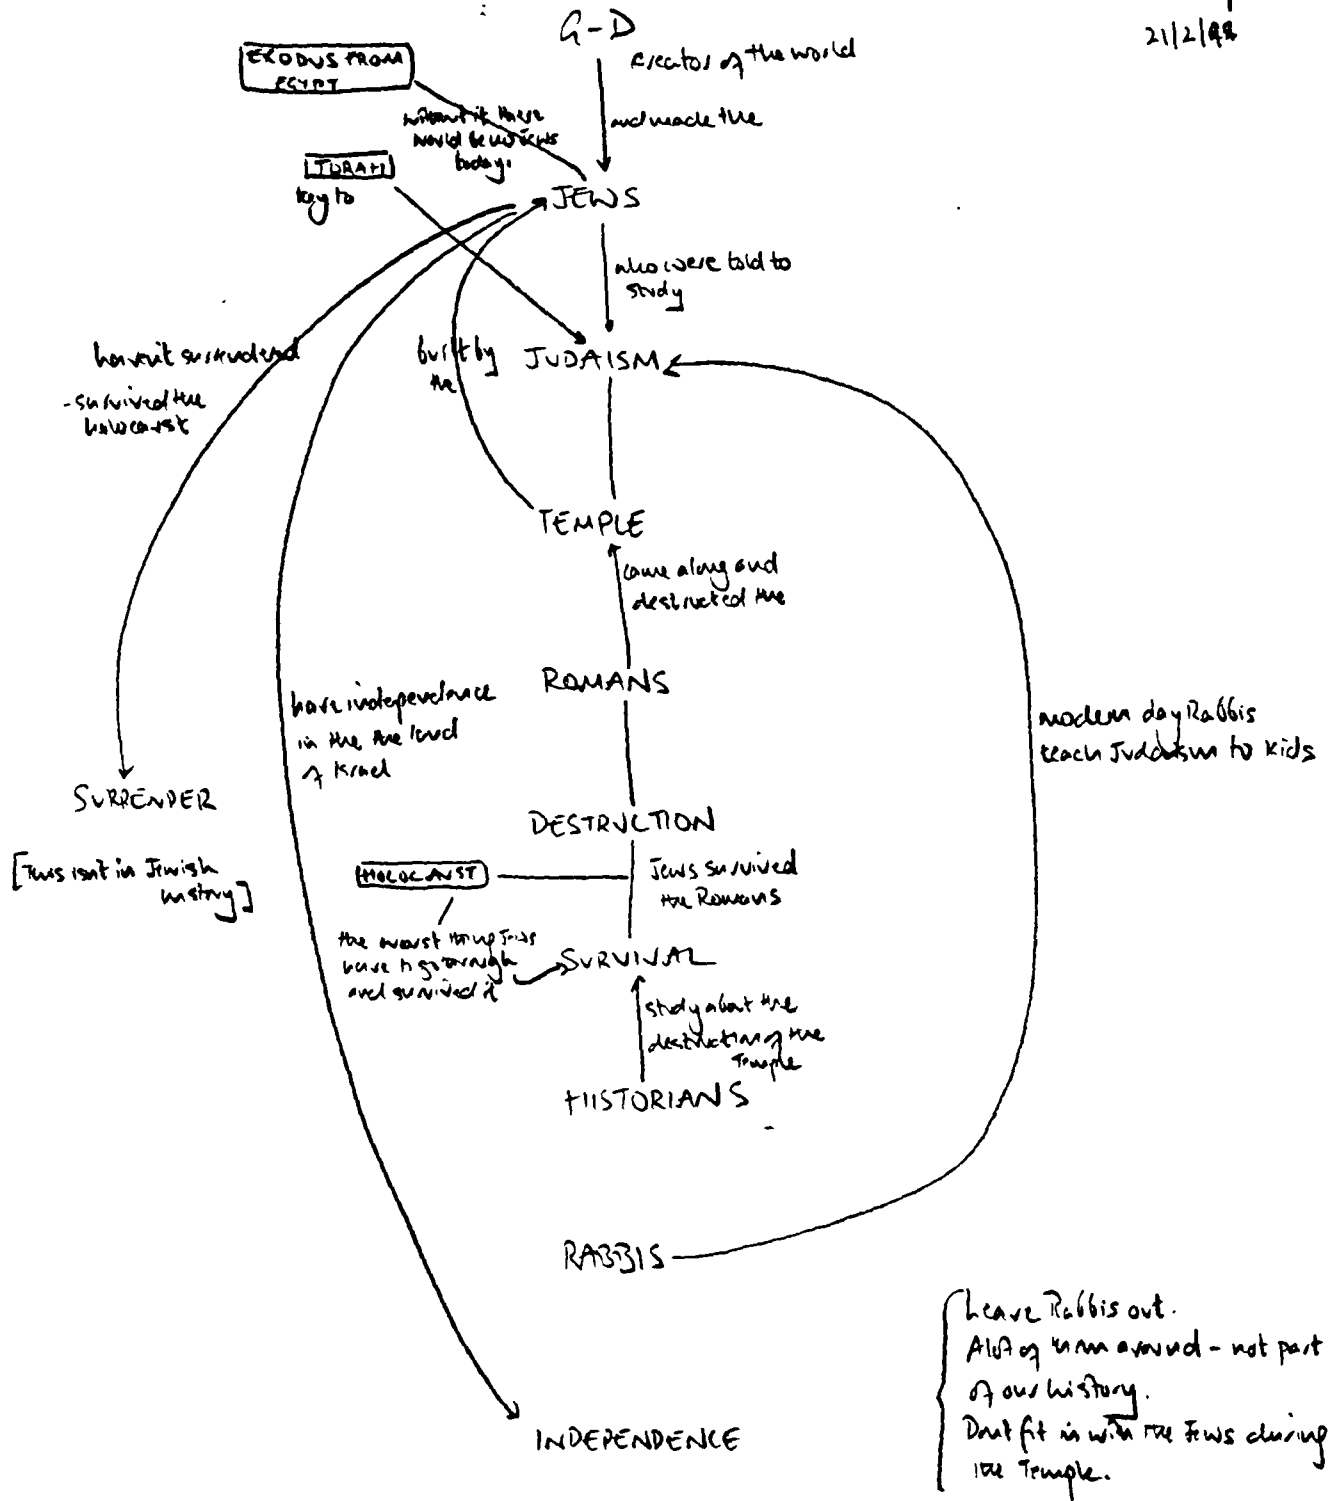 21/2/
G-D
creator of the world
EXODUS FROM
EGYPT
and made the
without it there
would be no Jews
today.
TORAH
key to
JEWS
who were told to
study
haven't surrendered
- survived the
holocaust
built by
the
JUDAISM
TEMPLE
came along and
destructed the
ROMANS
have independence
in the the land
of Israel
modern day Rabbis
teach Judaism to kids
SURRENDER
[This isn't in Jewish
history]
DESTRUCTION
HOLOCAUST
Jews survived
the Romans
the worst thing Jews
have to go through
and survived it
SURVIVAL
study about the
destruction of the
Temple
HISTORIANS
RABBIS
Leave Rabbis out.
Alot of them around - not part
of our history.
Dont fit in with the Jews during
the Temple.
INDEPENDENCE